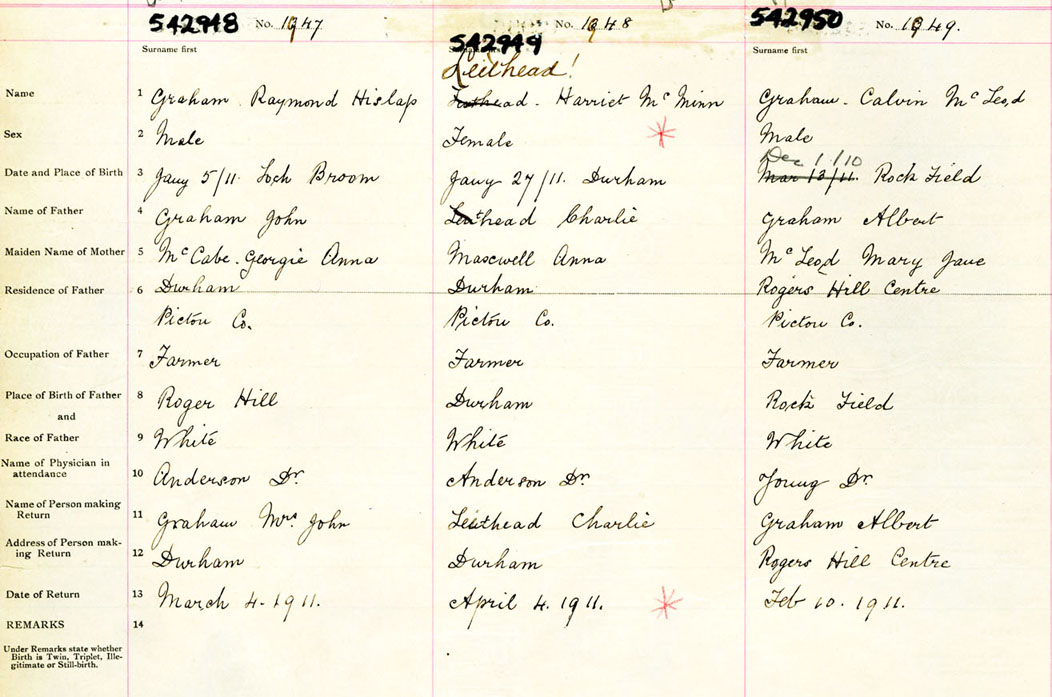 542948 No. 1947
542949 No. 1948
542950 No. 1949.
Surname first
Surname first
Leithead!
Name 1 Graham Raymond Hislop
head - Harriet Mc Minn
Graham - Calvin Mc Leod
Sex 2 Male
Female
Male
Dec 1/10
Date and Place of Birth 3 Jany 5/11 Loch Broom
Jany 27/11. Durham
Mar 13/11. Rock Field
Name of Father 4 Graham John
Leithead Charlie
Graham Albert
Maiden Name of Mother 5 McCabe - Georgie Anna
Maxwell Anna
McLeod Mary Jane
Residence of Father 6 Durham
Durham
Rogers Hill Centre
Pictou Co.
Pictou Co.
Pictou Co.
Occupation of Father 7 Farmer
Farmer
Farmer
Place of Birth of Father 8 Roger Hill
Durham
Rock Field
and
Race of Father 9 White
White
White
Name of Physician in
attendance 10 Anderson Dr.
Anderson Dr.
Young Dr.
Name of Person making
Return 11 Graham Mrs John
Leithead Charlie
Graham Albert
Address of Person mak-
ing Return 12 Durham
Durham
Rogers Hill Centre
Date of Return 13 March 4-1911.
April 4. 1911.
Feb 10. 1911.
REMARKS 14
Under Remarks state whether
Birth is Twin, Triplet, Ille-
gitimate or Still-birth.